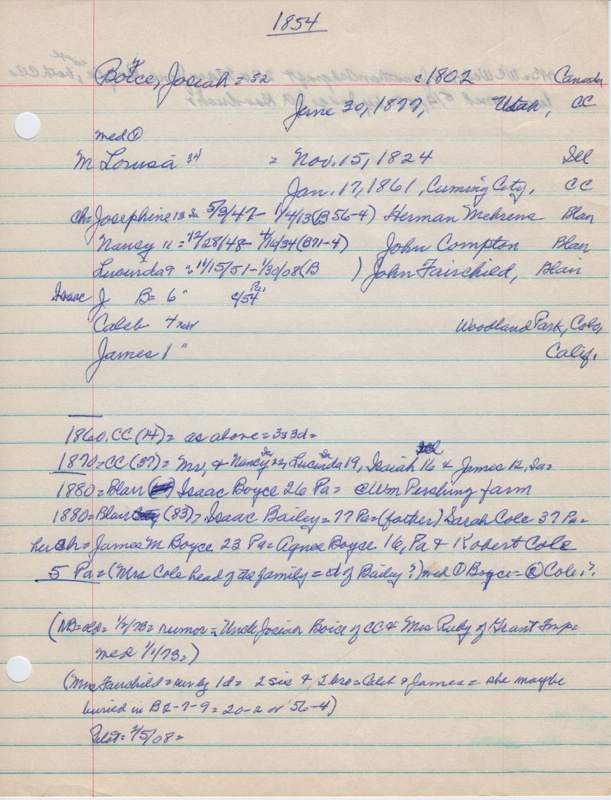 1854
Boyce, Josiah = 52 c1802 Canada
June 30, 1877, Utah, CC
med ①
M Lorusa 34 = Nov. 15, 1824 Del
Jan. 17, 1861, Cuming City, CC
ch= Josephine 13 Ia 5/3/47 - 1/4/13 (B 56-4) Herman Mehrens Blair
Nancy 11 = 12/28/48 - 4/16/34 (B71-4) John Compton Blair
Lucinda 9 = 11/15/51 - 1/30/08 (B ) John Fairchild, Blair
Isaac J B= 6 " c/54 Pa.
Caleb 4 Woodland Park, Colo,
James 1 " Calif.
1860, CC (14) = as above = 3s3d =
1870 = CC (37) = Mr, & Nancy 22, Lucinda 19, Isaiah 16 & James 12, Ia =
1880 = Blair Isaac Boyce 26 Pa = @ Wm Pershing farm
1880 = Blair (83) = Isaac Bailey = 77 Pa = (father) Sarah Cole 37 Pa =
her ch = James M Boyce 23 Pa = Agnes Boyce 16, Pa & Robert Cole
5 Pa = (Mrs Cole head of the family = d of Bailey?) med ① Boyce = ② Cole?.
(NB = old = 1/7/73 = rumor = Uncle Josiah Boice of CC & Mrs Ruby of Grant Twp =
med 1/1/73 = )
(Mrs Fairchild = surv by 1d = 2 sis & 2 bro = Caleb & James = she maybe
buried in B2-7-9 = 20-2 or 56-4)
Pilot = 2/5/08 =